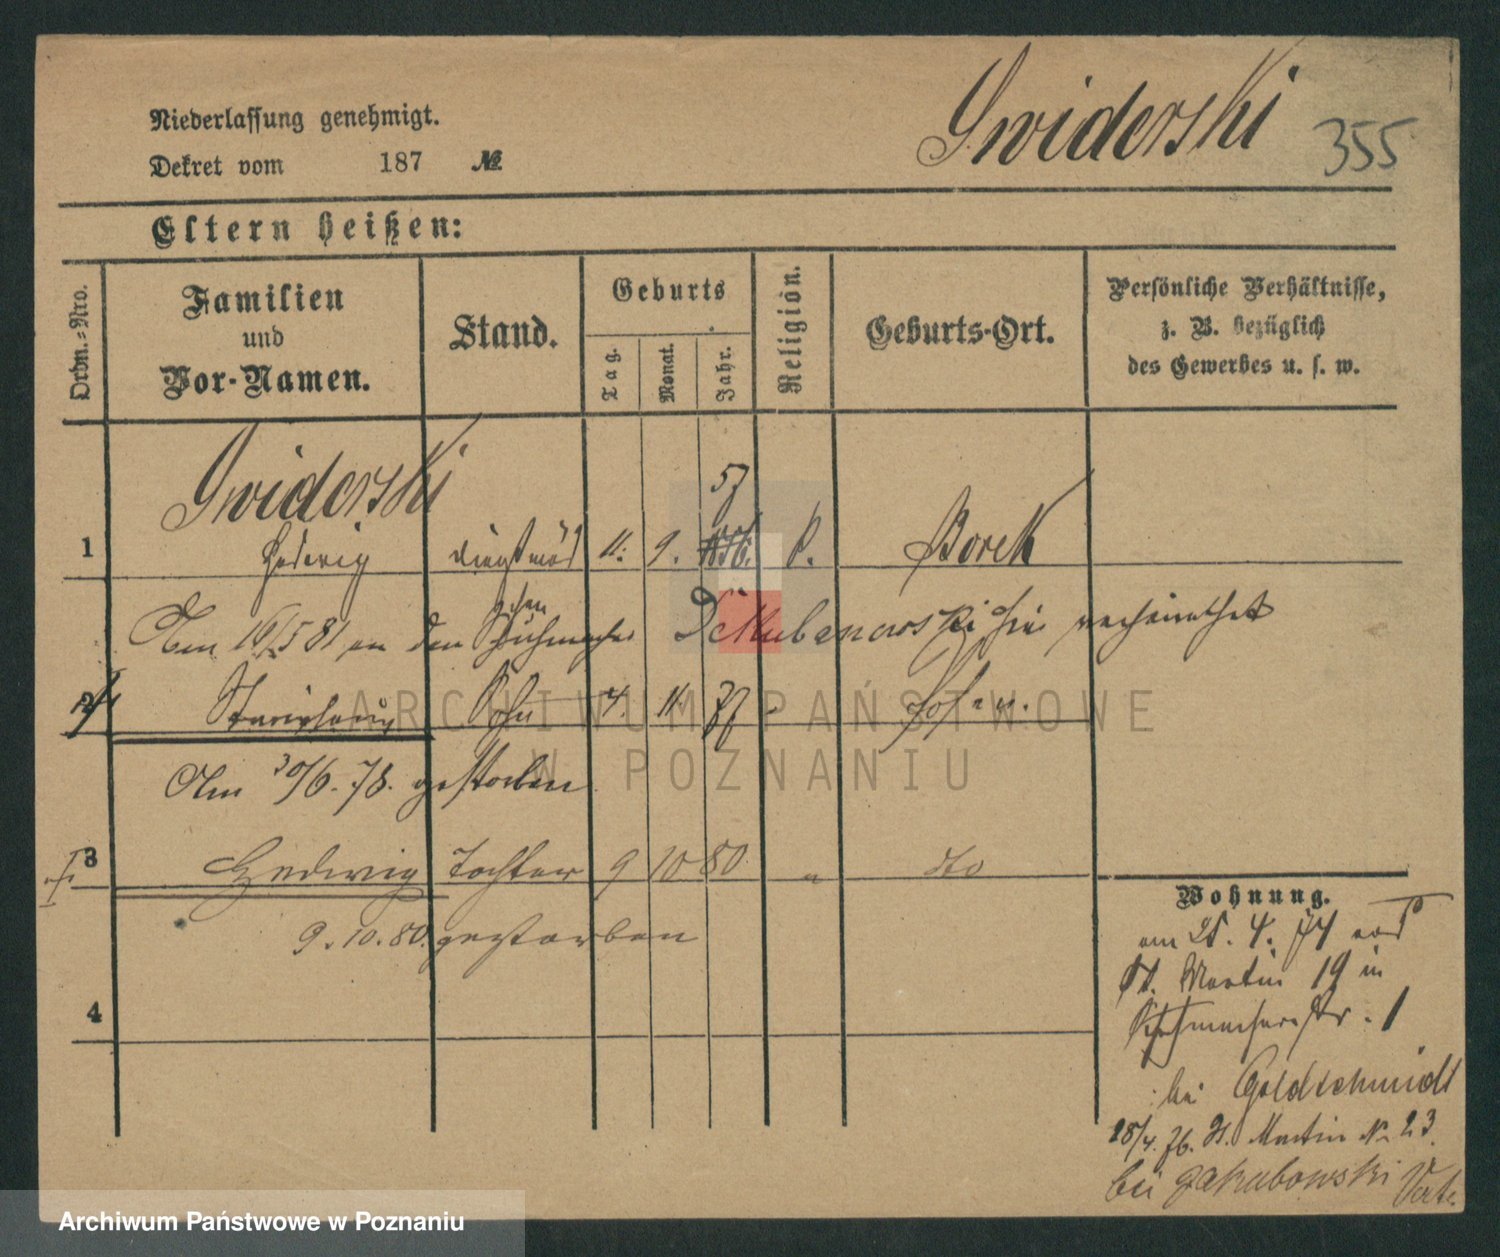 Niederlassung genehmigt.
Dekret vom 187 №
Swiderski 355
Eltern heißen:
Ordn.-Nro.
Familien
und
Vor-Namen.
Stand.
Geburts
Tag.
Monat.
Jahr.
Religion.
Geburts-Ort.
Persönliche Verhältnisse,
z. B. bezüglich
des Gewerbes u. s. w.
Swiderski
57
1 Hedwig Dienstmäd 11. 9. 1856. k. Borek
Am 16/5 81 an den Schuhmacher hier verheirathet
2 Stanislaus Sohn 4. 11. 77 Posen.
Am 30/6. 78. gestorben
3 Hedwig Tochter 9 10 80 " dto
9. 10. 80. gestorben
4
Wohnung.
am 25. 4. 74 von
St. Martin 19 in
. 1
bei Goldschmidt
28/4. 76. St. Martin № 23.
bei Jakubowski
ARCHIWUM PAŃSTWOWE
W POZNANIU
Archiwum Państwowe w Poznaniu